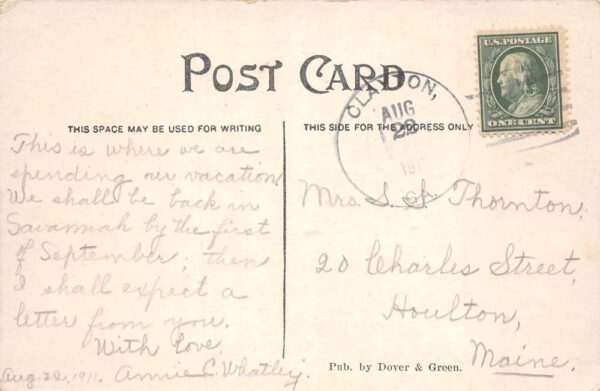 POST CARD
U.S. POSTAGE
ONE CENT
CLAYTON,
AUG
22
19
GA.
THIS SPACE MAY BE USED FOR WRITING
THIS SIDE FOR THE ADDRESS ONLY
This is where we are
spending our vacation.
We shall be back in
Savannah by the first
of September; then
I shall expect a
letter from you.
With love,
Annie C. Whatley.
Aug. 22, 1911.
Mrs. S. S. Thornton,
20 Charles Street,
Houlton,
Maine.
Pub. by Dover & Green.